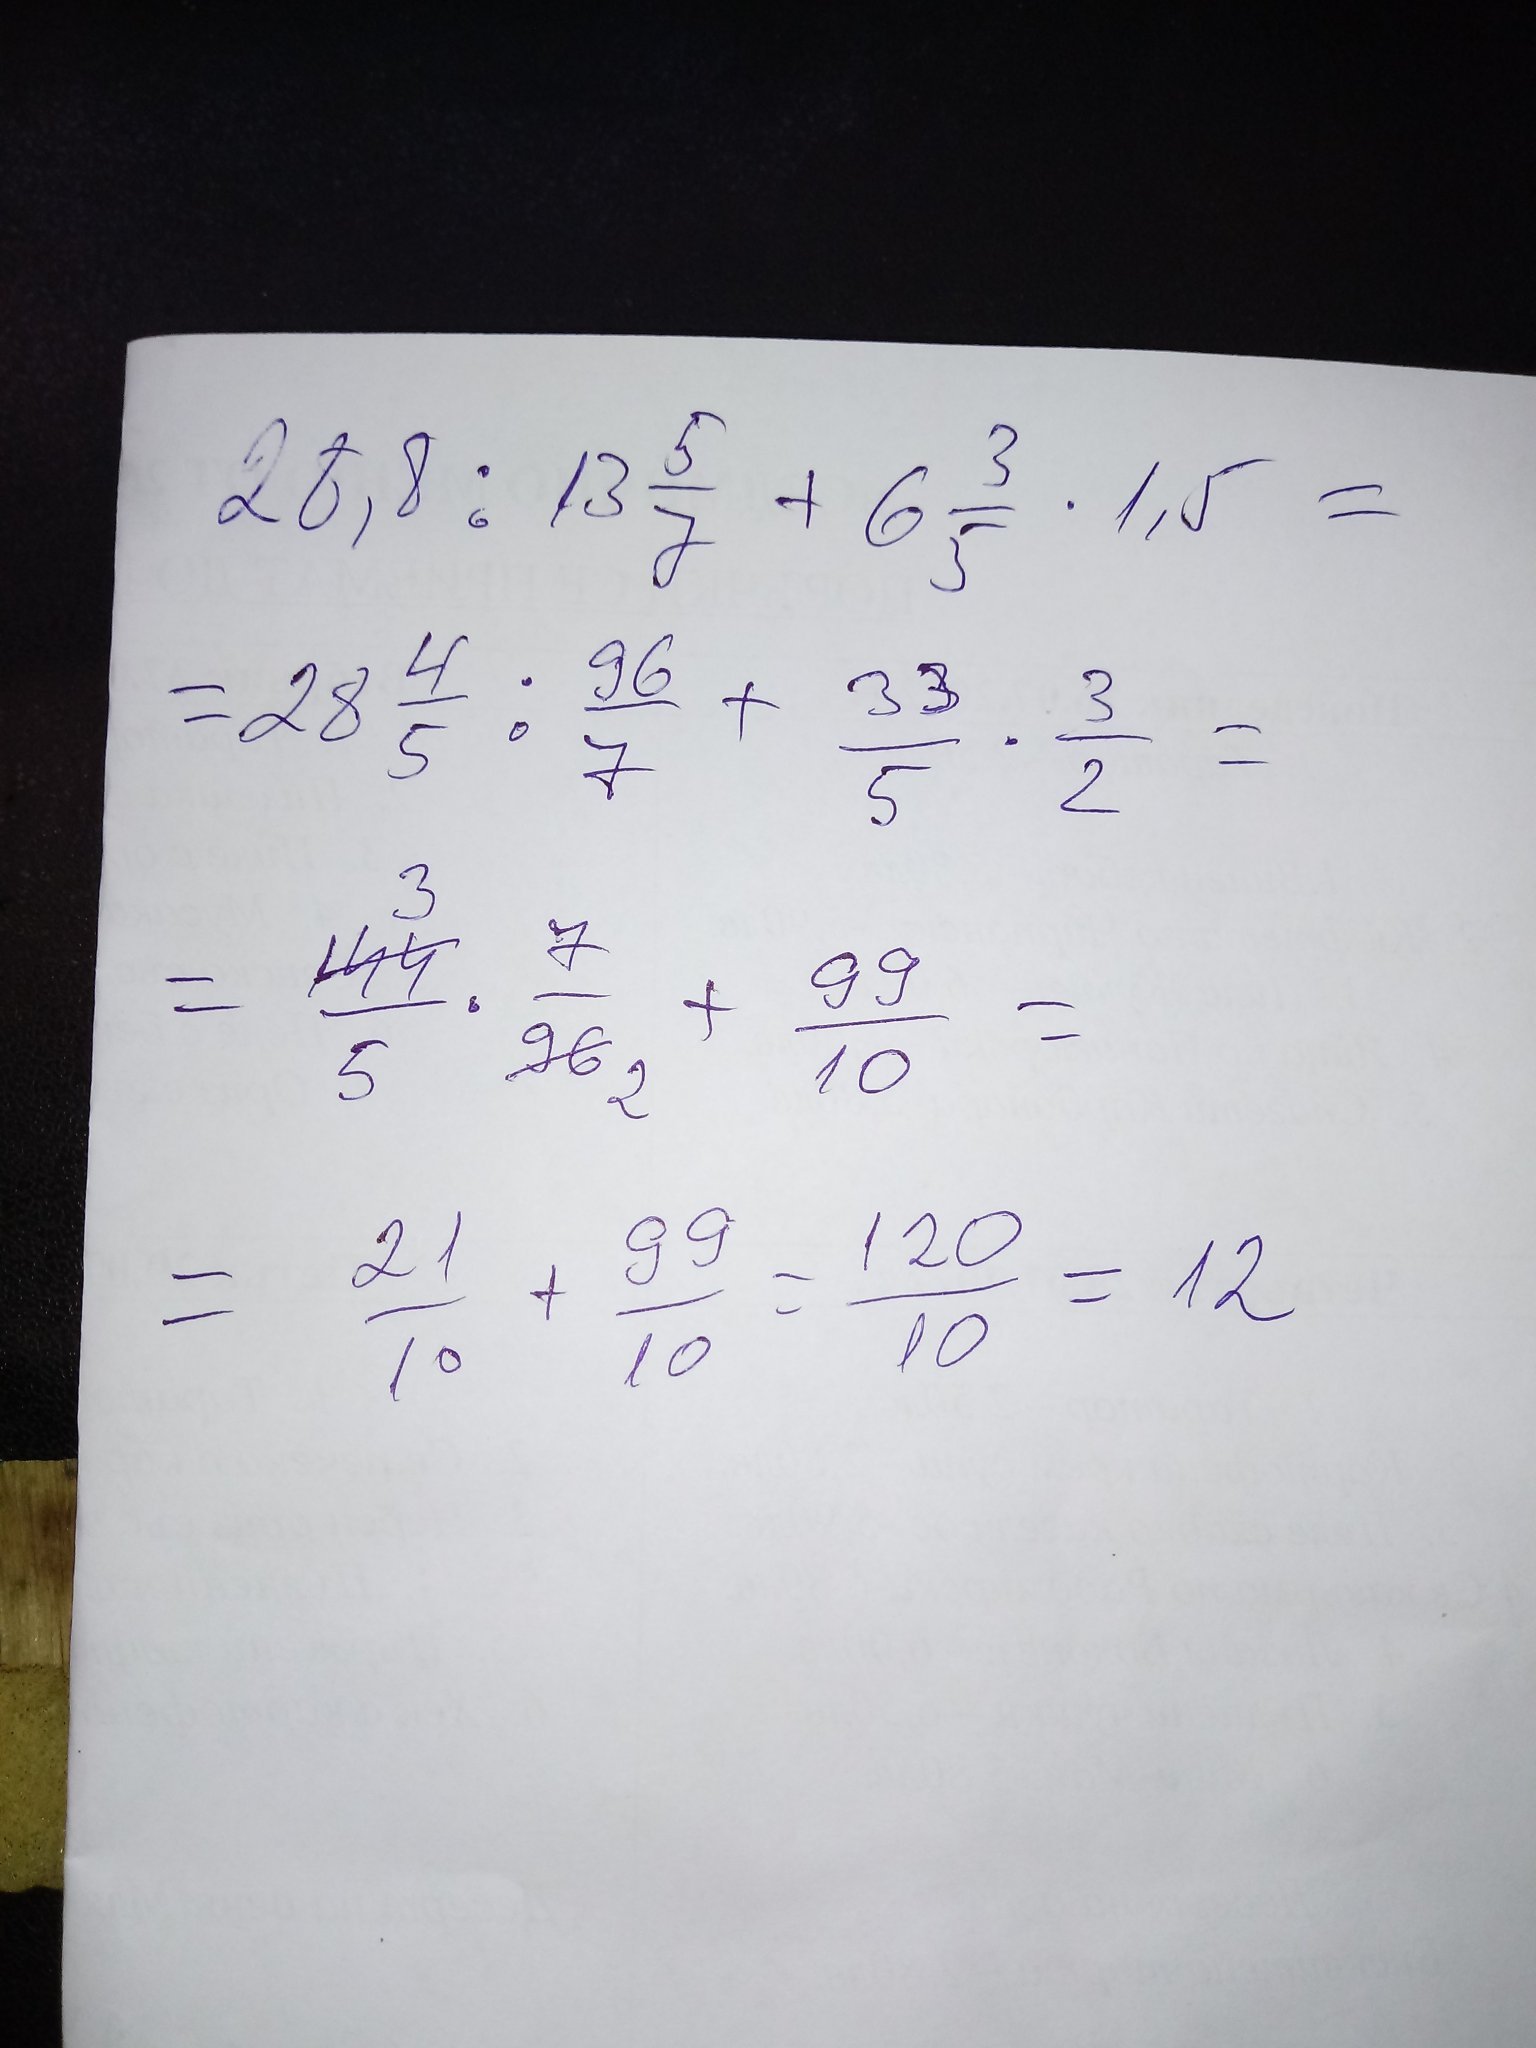 28,8 : 13 5/7 + 6 3/5 · 1,5 =
= 28 4/5 : 96/7 + 33/5 · 3/2 =
= 144/5 3 · 7/96 2 + 99/10 =
= 21/10 + 99/10 = 120/10 = 12